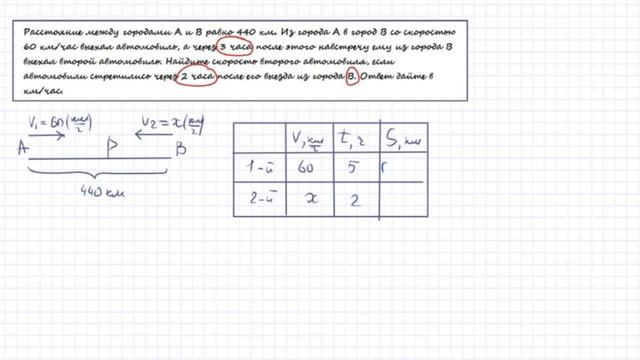 Расстояние между городами А и В равно 440 км. Из города А в город В со скоростью
60 км/час выехал автомобиль, а через 3 часа после этого навстречу ему из города В
выехал второй автомобиль. Найдите скорость второго автомобиля, если
автомобили встретились через 2 часа после его выезда из города В. Ответ дайте в
км/час.
V₁=60(км/г) V2=x(км/г)
A B
440 км
V, км/г t, г S, км
1-й 60 5
2-й x 2